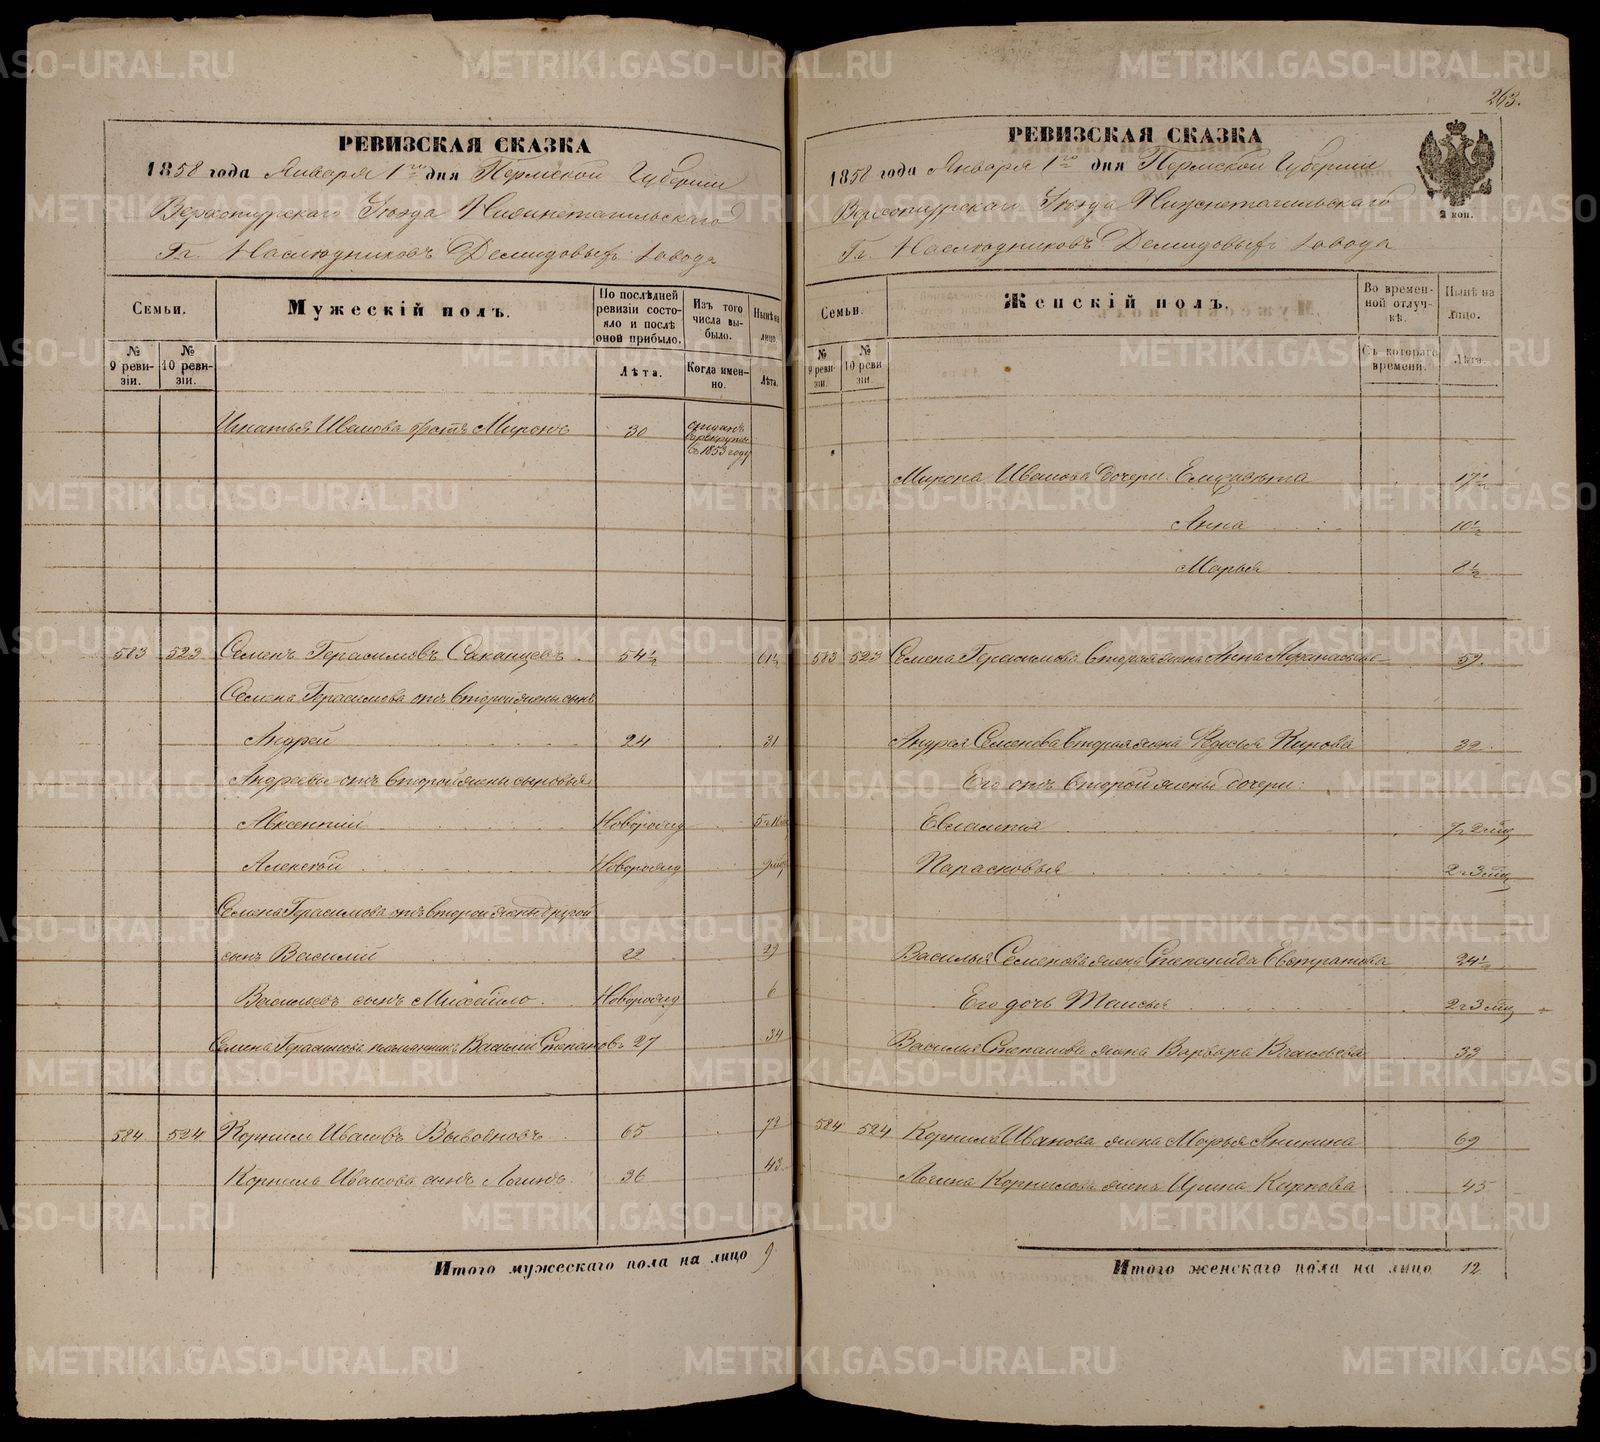 263.
РЕВИЗСКАЯ СКАЗКА
1858 года Января 1го дня Пермской Губернии
Верхотурскаго Уезда Нижнетагильскаго
Гг. Наследниковъ Демидовыхъ завода
Семьи.
Мужескій полъ.
По послѣдней ревизіи состояло и послѣ оной прибыло.
Изъ того числа выбыло.
Нынѣ на лицо.
№ 9 ревизіи.
№ 10 ревизіи.
Лѣта.
Когда именно.
Лѣта.
Игнатья Иванова братъ Миронъ 30 въ рекруты въ 1853 году
583 523 Семенъ Герасимовъ 54½ 61½
Семена Герасимова отъ второй жены сынъ
Андрей 24 31
Андреевы отъ второй жены сыновья
Авксентий Новорожд
Алексей Новорожд
Семена Герасимова отъ второй жены другой
сынъ Василий 22 29
Васильевъ сынъ Михайло Новорожд 6
Семена Герасимова племянникъ Василий Степановъ 27 34
584 524 Корнило Ивановъ 65 72
Корнила Иванова сынъ Логинъ 36 43
Итого мужескаго пола на лицо 9
РЕВИЗСКАЯ СКАЗКА
1858 года Января 1го дня Пермской Губернии
Верхотурскаго Уезда Нижнетагильскаго
Гг. Наследниковъ Демидовыхъ завода
2 коп.
Семьи.
Женскій полъ.
Во временной отлучкѣ.
Нынѣ на лицо.
№ 9 ревизіи.
№ 10 ревизіи.
Съ котораго времени.
Лѣта.
Мирона Иванова дочери: Елизавета 17½
Анна 10½
Марья 8½
583 523 Семена Герасимова вторая жена Анна 59
Андрея Семенова вторая жена Федосья Кирова 32
Его отъ второй жены дочери:
Евлампия
Парасковья 2 г 3 мц
Василья Семенова жена Степанида Евстратова 24½
Его дочь Таисья 2 г 3 мц
Василья Степанова жена Варвара Васильева 33
584 524 Корнила Иванова жена Марья Аникина 69
Логина Корнилова жена Ирина Карпова 45
Итого женскаго пола на лицо 12
METRIKI.GASO-URAL.RU